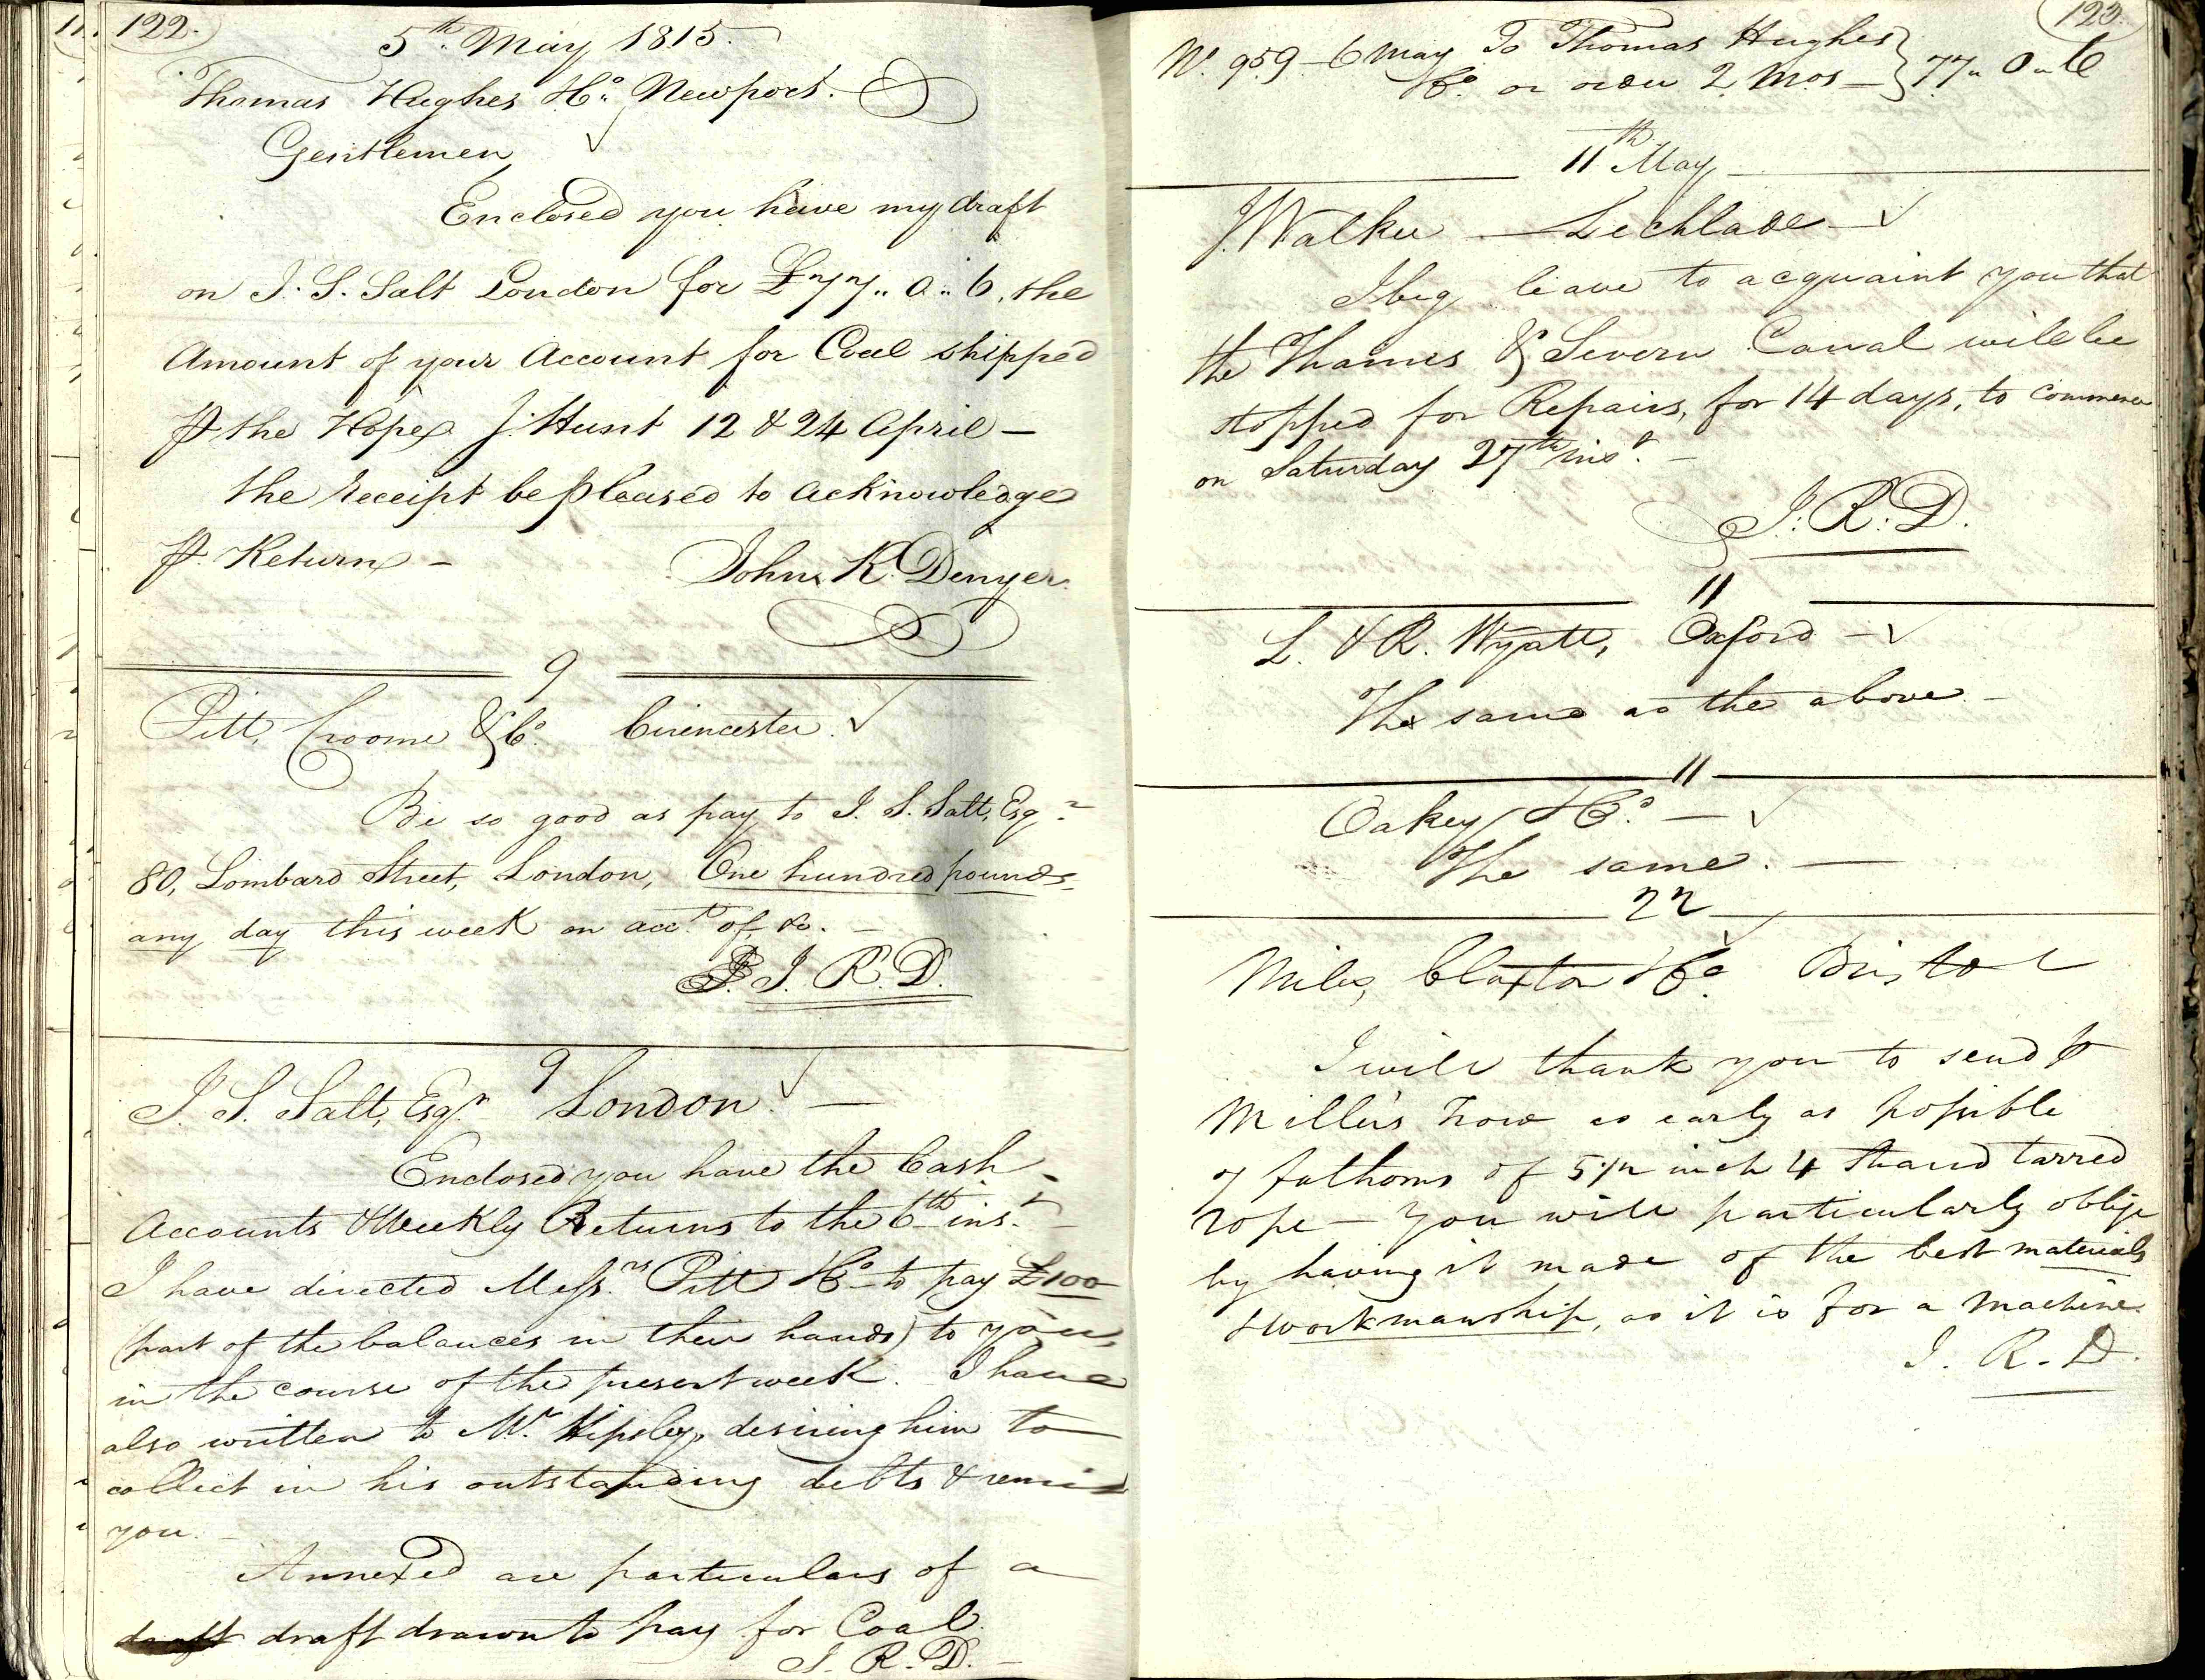 122.
5th. May 1815.
Thomas Hughes & Co. Newport.
Gentlemen
Enclosed you have my draft
on I. S. Salt London for £77 " 0 " 6, the
Amount of your Account for Coal shipped
⅌ the Hope J. Hunt 12 & 24 April —
the receipt be pleased to acknowledge
⅌ Return —
John K. Denyer.
9
Pitt, Croome & Co. Cirencester. ✓
Be so good as pay to I. S. Salt, Esqr.
80, Lombard Street, London, One hundred pounds,
any day this week on acct. of, &c. —
I. R. D.
9
I. S. Salt, Esqr. London. —
Enclosed you have the Cash
Accounts & Weekly Returns to the 6th inst. —
I have directed Messrs. Pitt & Co to pay £100
(part of the balances in their hands) to you,
in the course of the present week. I have
also written to Mr. Hipsley, desiring him to
collect in his outstanding debts & remit
you. —
Annexed are particulars of a
draft draft drawn to pay for Coal.
I. R. D. —
123.
No. 959 - 6 May To Thomas Hughes
& Co or order 2 Mos — } 77 " 0 " 6
11th May
J. Walker — Lechlade — ✓
I beg leave to acquaint you that
the Thames & Severn Canal will be
stopped for Repairs, for 14 days, to commence
on Saturday 27th inst. —
J. R. D.
11
L. & R. Wyatt, Oxford — ✓
The same as the above —
11
Oakey & Co. — ✓
The same. —
22
Miles, Claxton & Co. Bristol
I will thank you to send ⅌
Miller's Trow as early as possible
7 fathoms of 5 1/2 inch 4 strand tarred
rope — You will particularly oblige
by having it made of the best materials
& workmanship, as it is for a machine.
I. R. D.